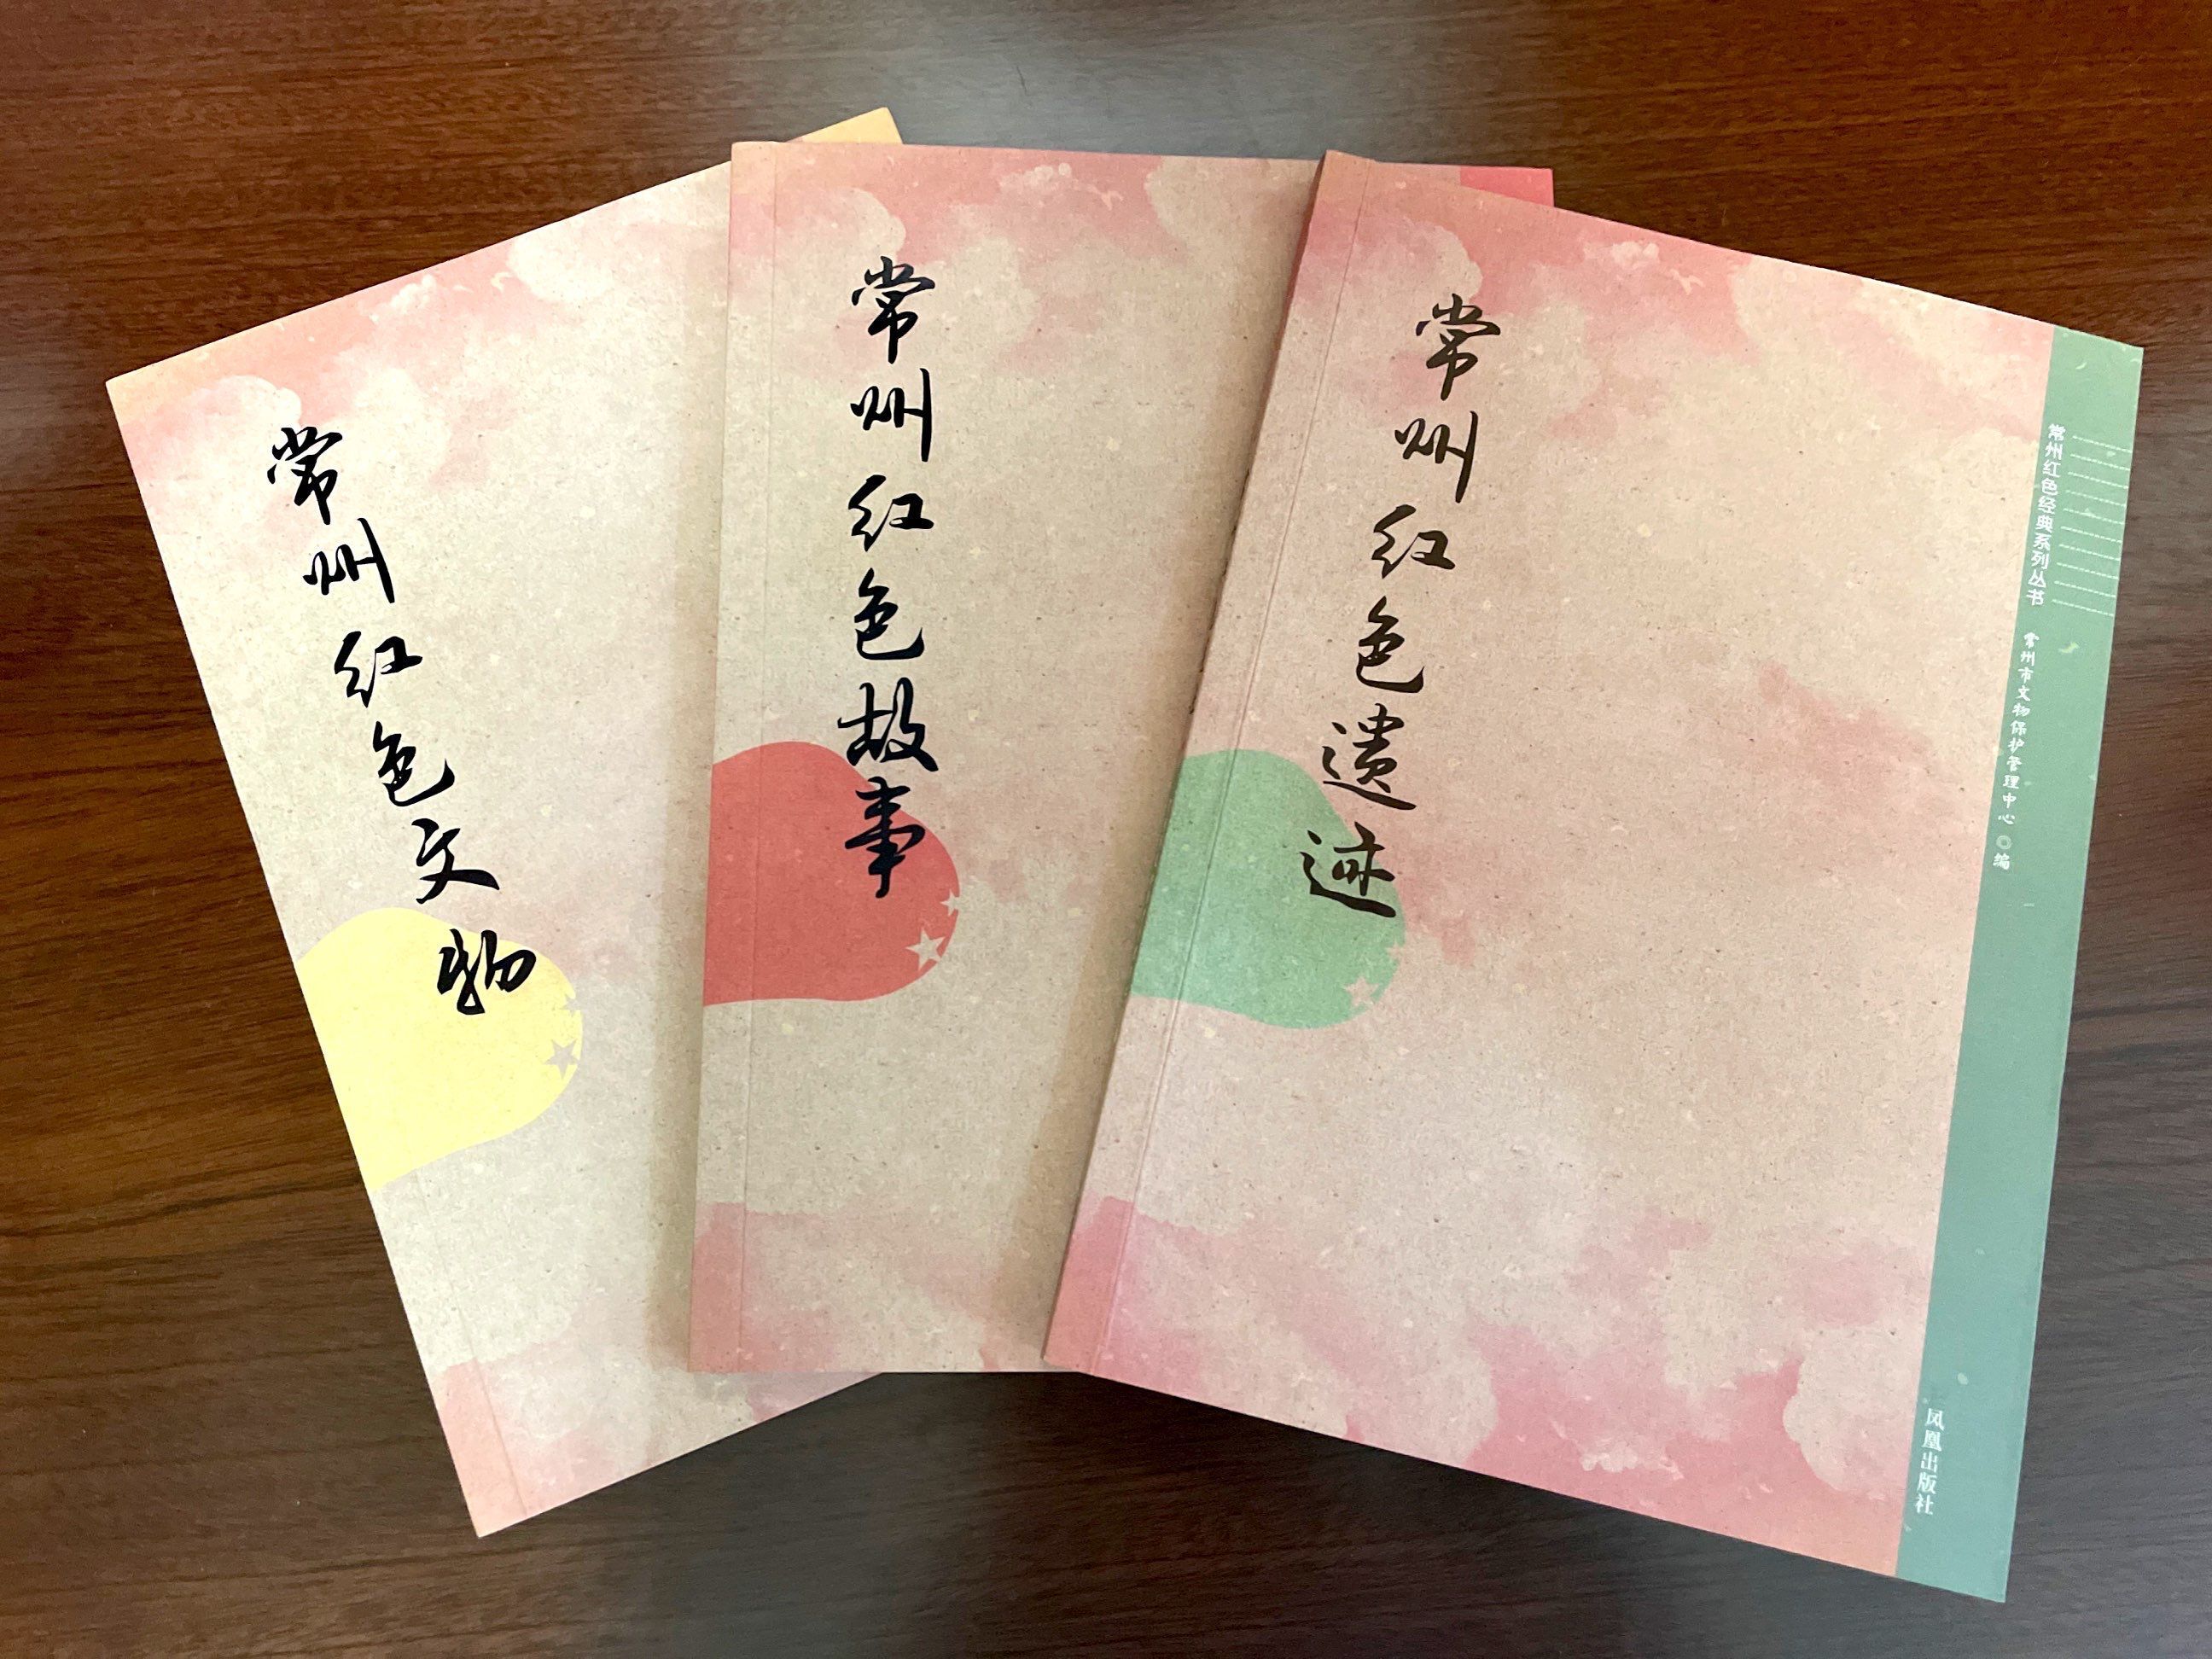 常州红色文物
常州红色故事
常州红色遗迹
常州红色经典系列丛书
常州市文物保护管理中心◎编
凤凰出版社